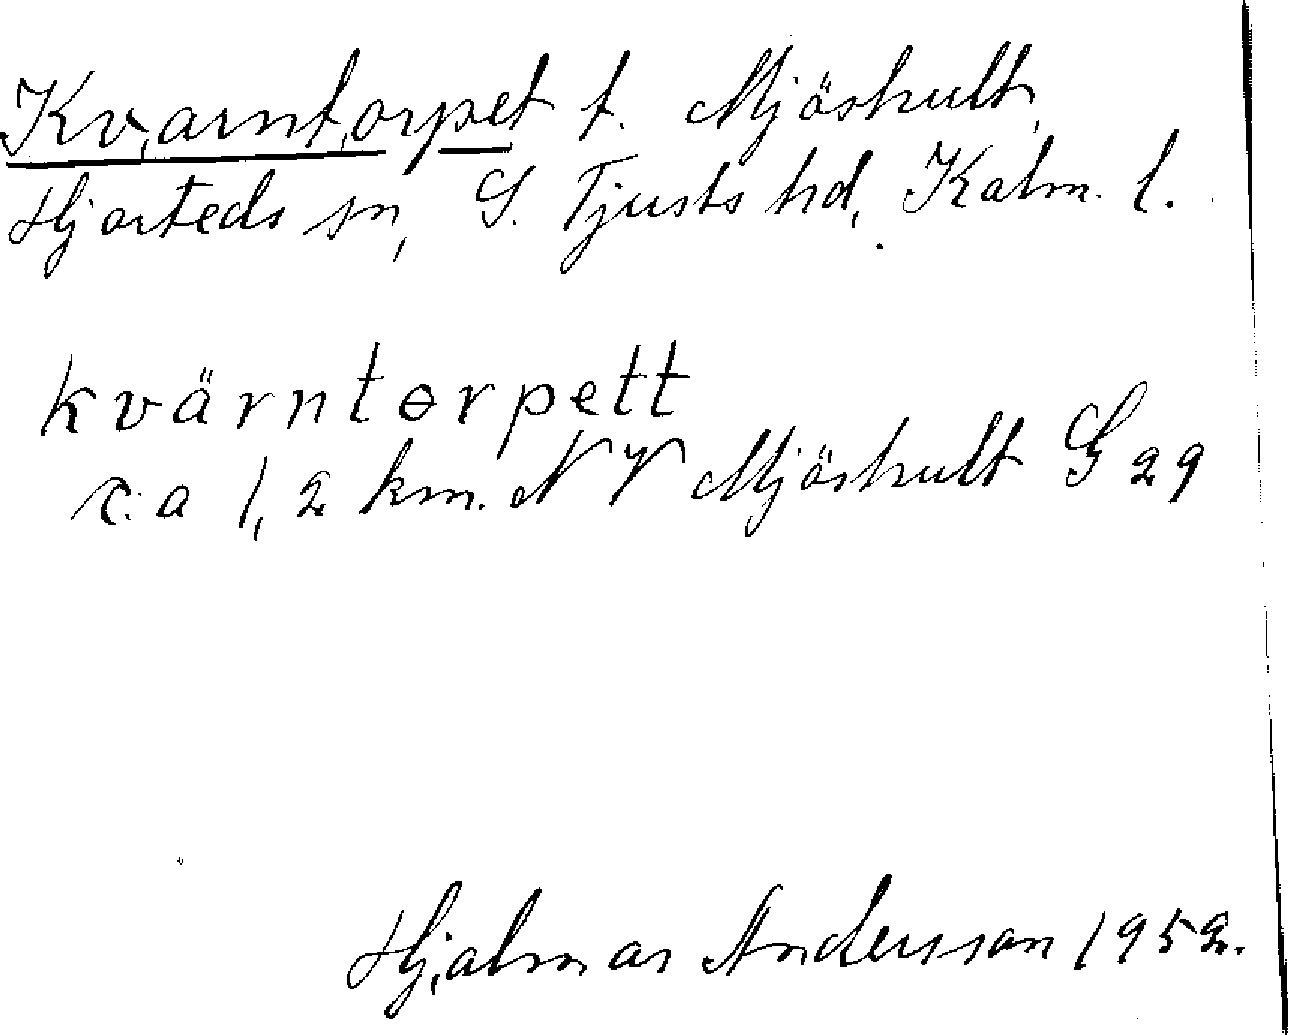 Kvarntorpet t. Mjöshult,
Hjorteds sn, S. Tjusts hd, Kalm. l.
kvärntorpett
c:a 1,2 km. NV Mjöshult G 29
Hjalmar Andersson 1952.